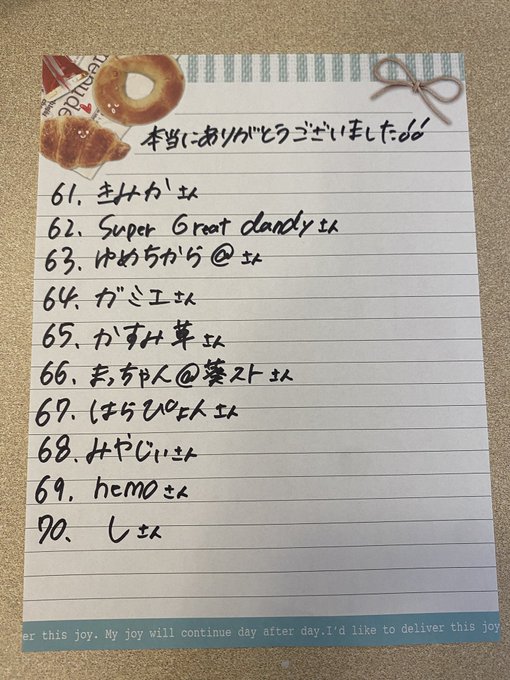 本当にありがとうございました!!
61. きみかさん
62. Super Great dandyさん
63. ゆめちから@さん
64. ガミエさん
65. かすみ草さん
66. まっちゃん@葵ストさん
67. はらぴょんさん
68. みやじぃさん
69. nemoさん
70. しさん
er this joy. My joy will continue day after day.I'd like to deliver this joy